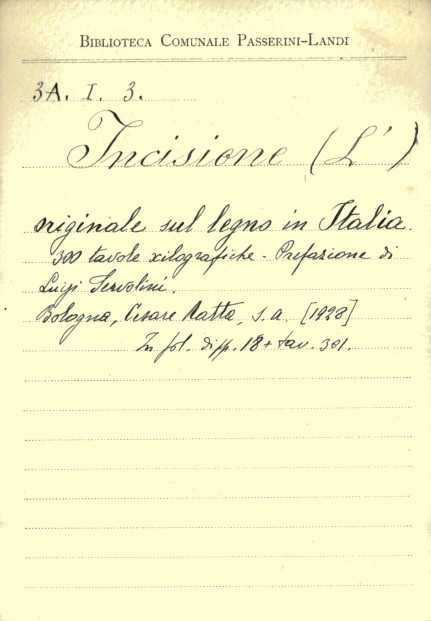 BIBLIOTECA COMUNALE PASSERINI-LANDI
3A. I. 3.
Incisione (L')
originale sul legno in Italia.
300 tavole xilografiche - Prefazione di
Luigi Servolini.
Bologna, Cesare Ratta, s. a. [1928]
In fol. di pp. 18 + tav. 301.